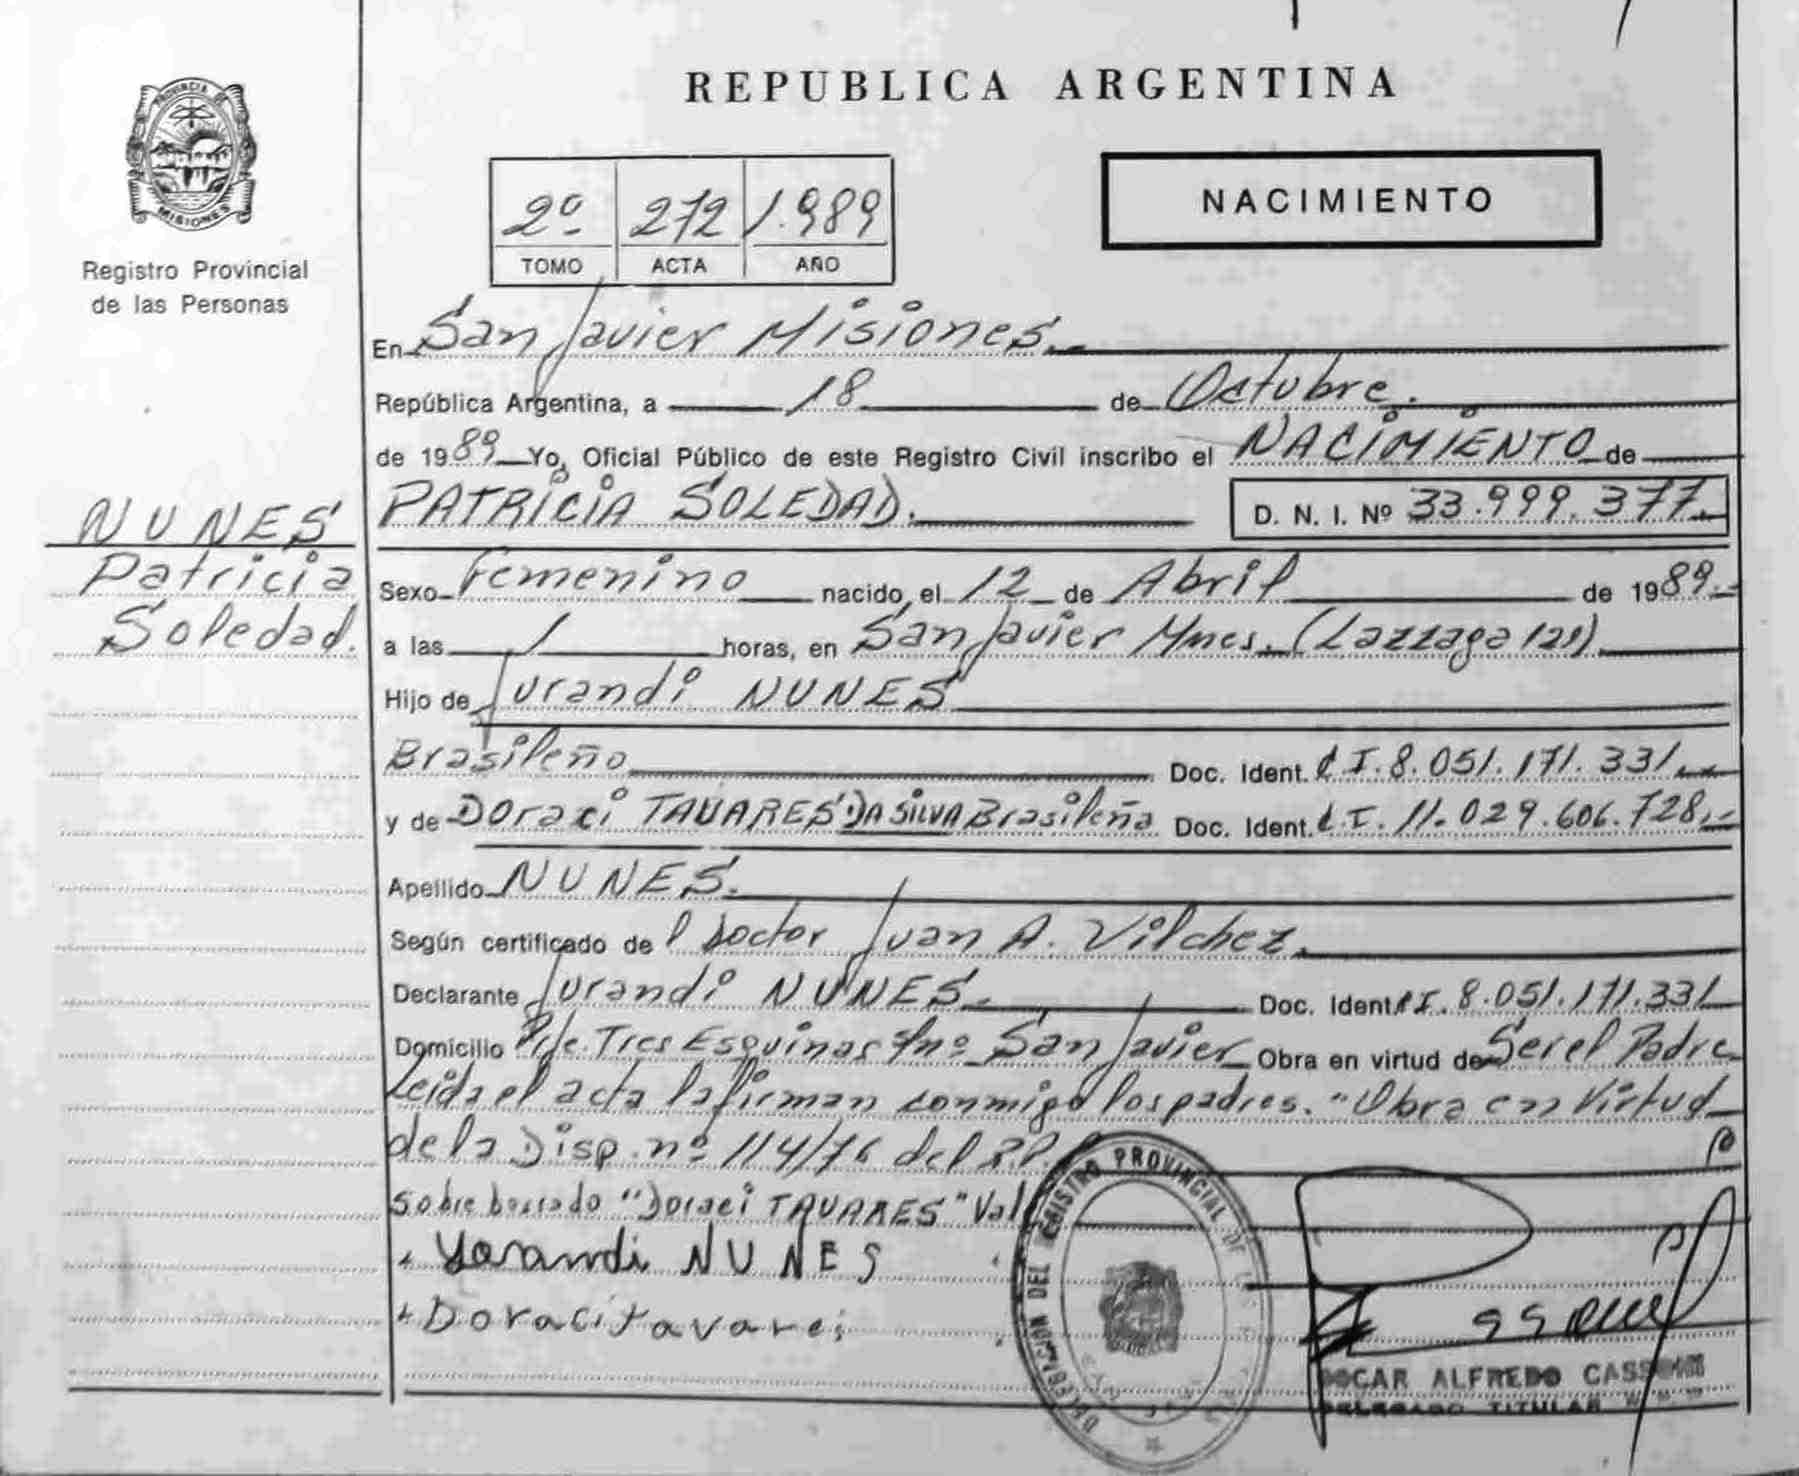 PROVINCIA DE
MISIONES
Registro Provincial
de las Personas
REPUBLICA ARGENTINA
2º 272 1.989
TOMO ACTA AÑO
NACIMIENTO
En San Javier Misiones.
República Argentina, a 18 de Octubre.
de 1989 Yo, Oficial Público de este Registro Civil inscribo el NACIMIENTO de
PATRICIA SOLEDAD. D. N. I. Nº 33.999.377.
NUNES
Patricia
Soledad.
Sexo Femenino nacido, el 12 de Abril de 1989.
a las 1 horas, en San Javier Mnes. (Lazzaga 121)
Hijo de Jurandi NUNES
Brasileño Doc. Ident. C I. 8.051.171.331
y de Doraci TAVARES DA SILVA Brasileña Doc. Ident. C. I. 11.029.606.728
Apellido NUNES.
Según certificado de l Doctor Juan A. Vilchez.
Declarante Jurandi NUNES. Doc. Ident. C I. 8.051.171.331
Domicilio Pje. Tres Esquinas S/nº San Javier Obra en virtud de Ser el Padre
Leida el acta la firman conmigo los padres. "Obra en Virtud
de la Disp. nº 114/76 del R.P.
sobre borrado "Doraci TAVARES" Val
+ Yorandi NUNES
+ Doraci tavares
DELEGACION DEL REGISTRO PROVINCIAL DE
OSCAR ALFREDO
DELEGADO TITULAR